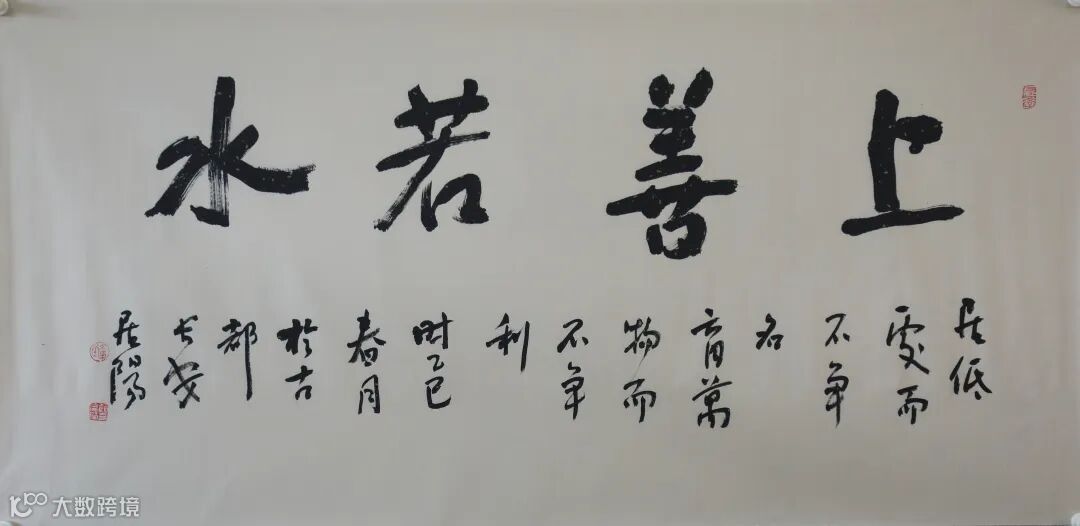 上善若水
居低
處而
不争
名
育萬
物而
不争
利
時乙巳
春月
於古
都
长安
居陽
大数跨境